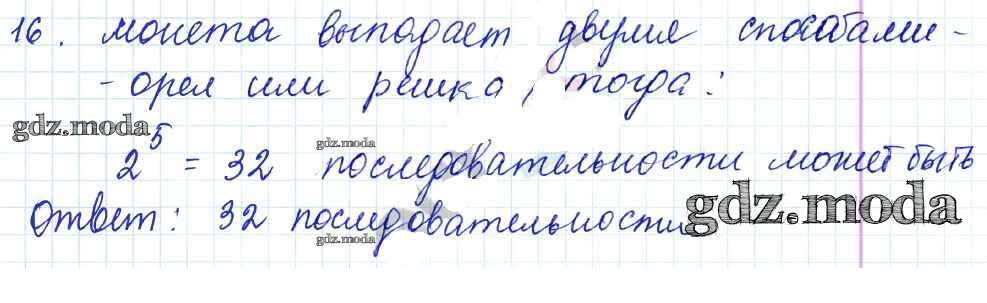 16. монета выпадает двумя способами -
- орел или решка, тогда:
gdz.moda
gdz.moda
2⁵ = 32 последовательности может быть
Ответ: 32 последовательности
gdz.moda
gdz.moda